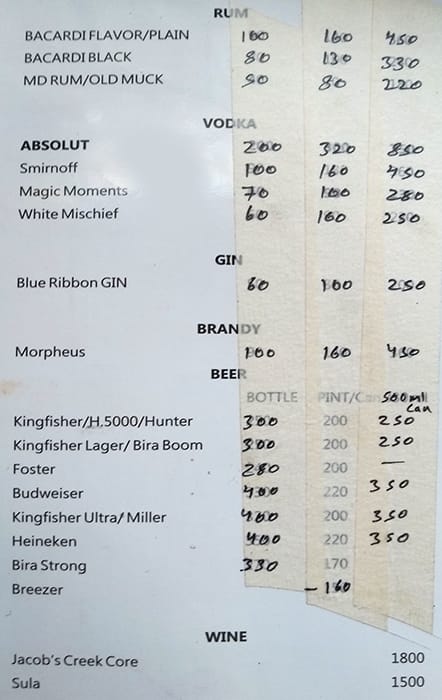 RUM
BACARDI FLAVOR/PLAIN 100 160 450
BACARDI BLACK 80 130 330
MD RUM/OLD MUCK 50 80 220
VODKA
ABSOLUT 200 320 850
Smirnoff 100 160 450
Magic Moments 70 100 280
White Mischief 60 160 250
GIN
Blue Ribbon GIN 60 100 250
BRANDY
Morpheus 100 160 450
BEER
BOTTLE PINT/Can 500 ml Can
Kingfisher/H,5000/Hunter 300 200 250
Kingfisher Lager/ Bira Boom 300 200 250
Foster 280 200 —
Budweiser 400 220 350
Kingfisher Ultra/ Miller 400 200 350
Heineken 400 220 350
Bira Strong 330 170
Breezer – 160
WINE
Jacob's Creek Core 1800
Sula 1500